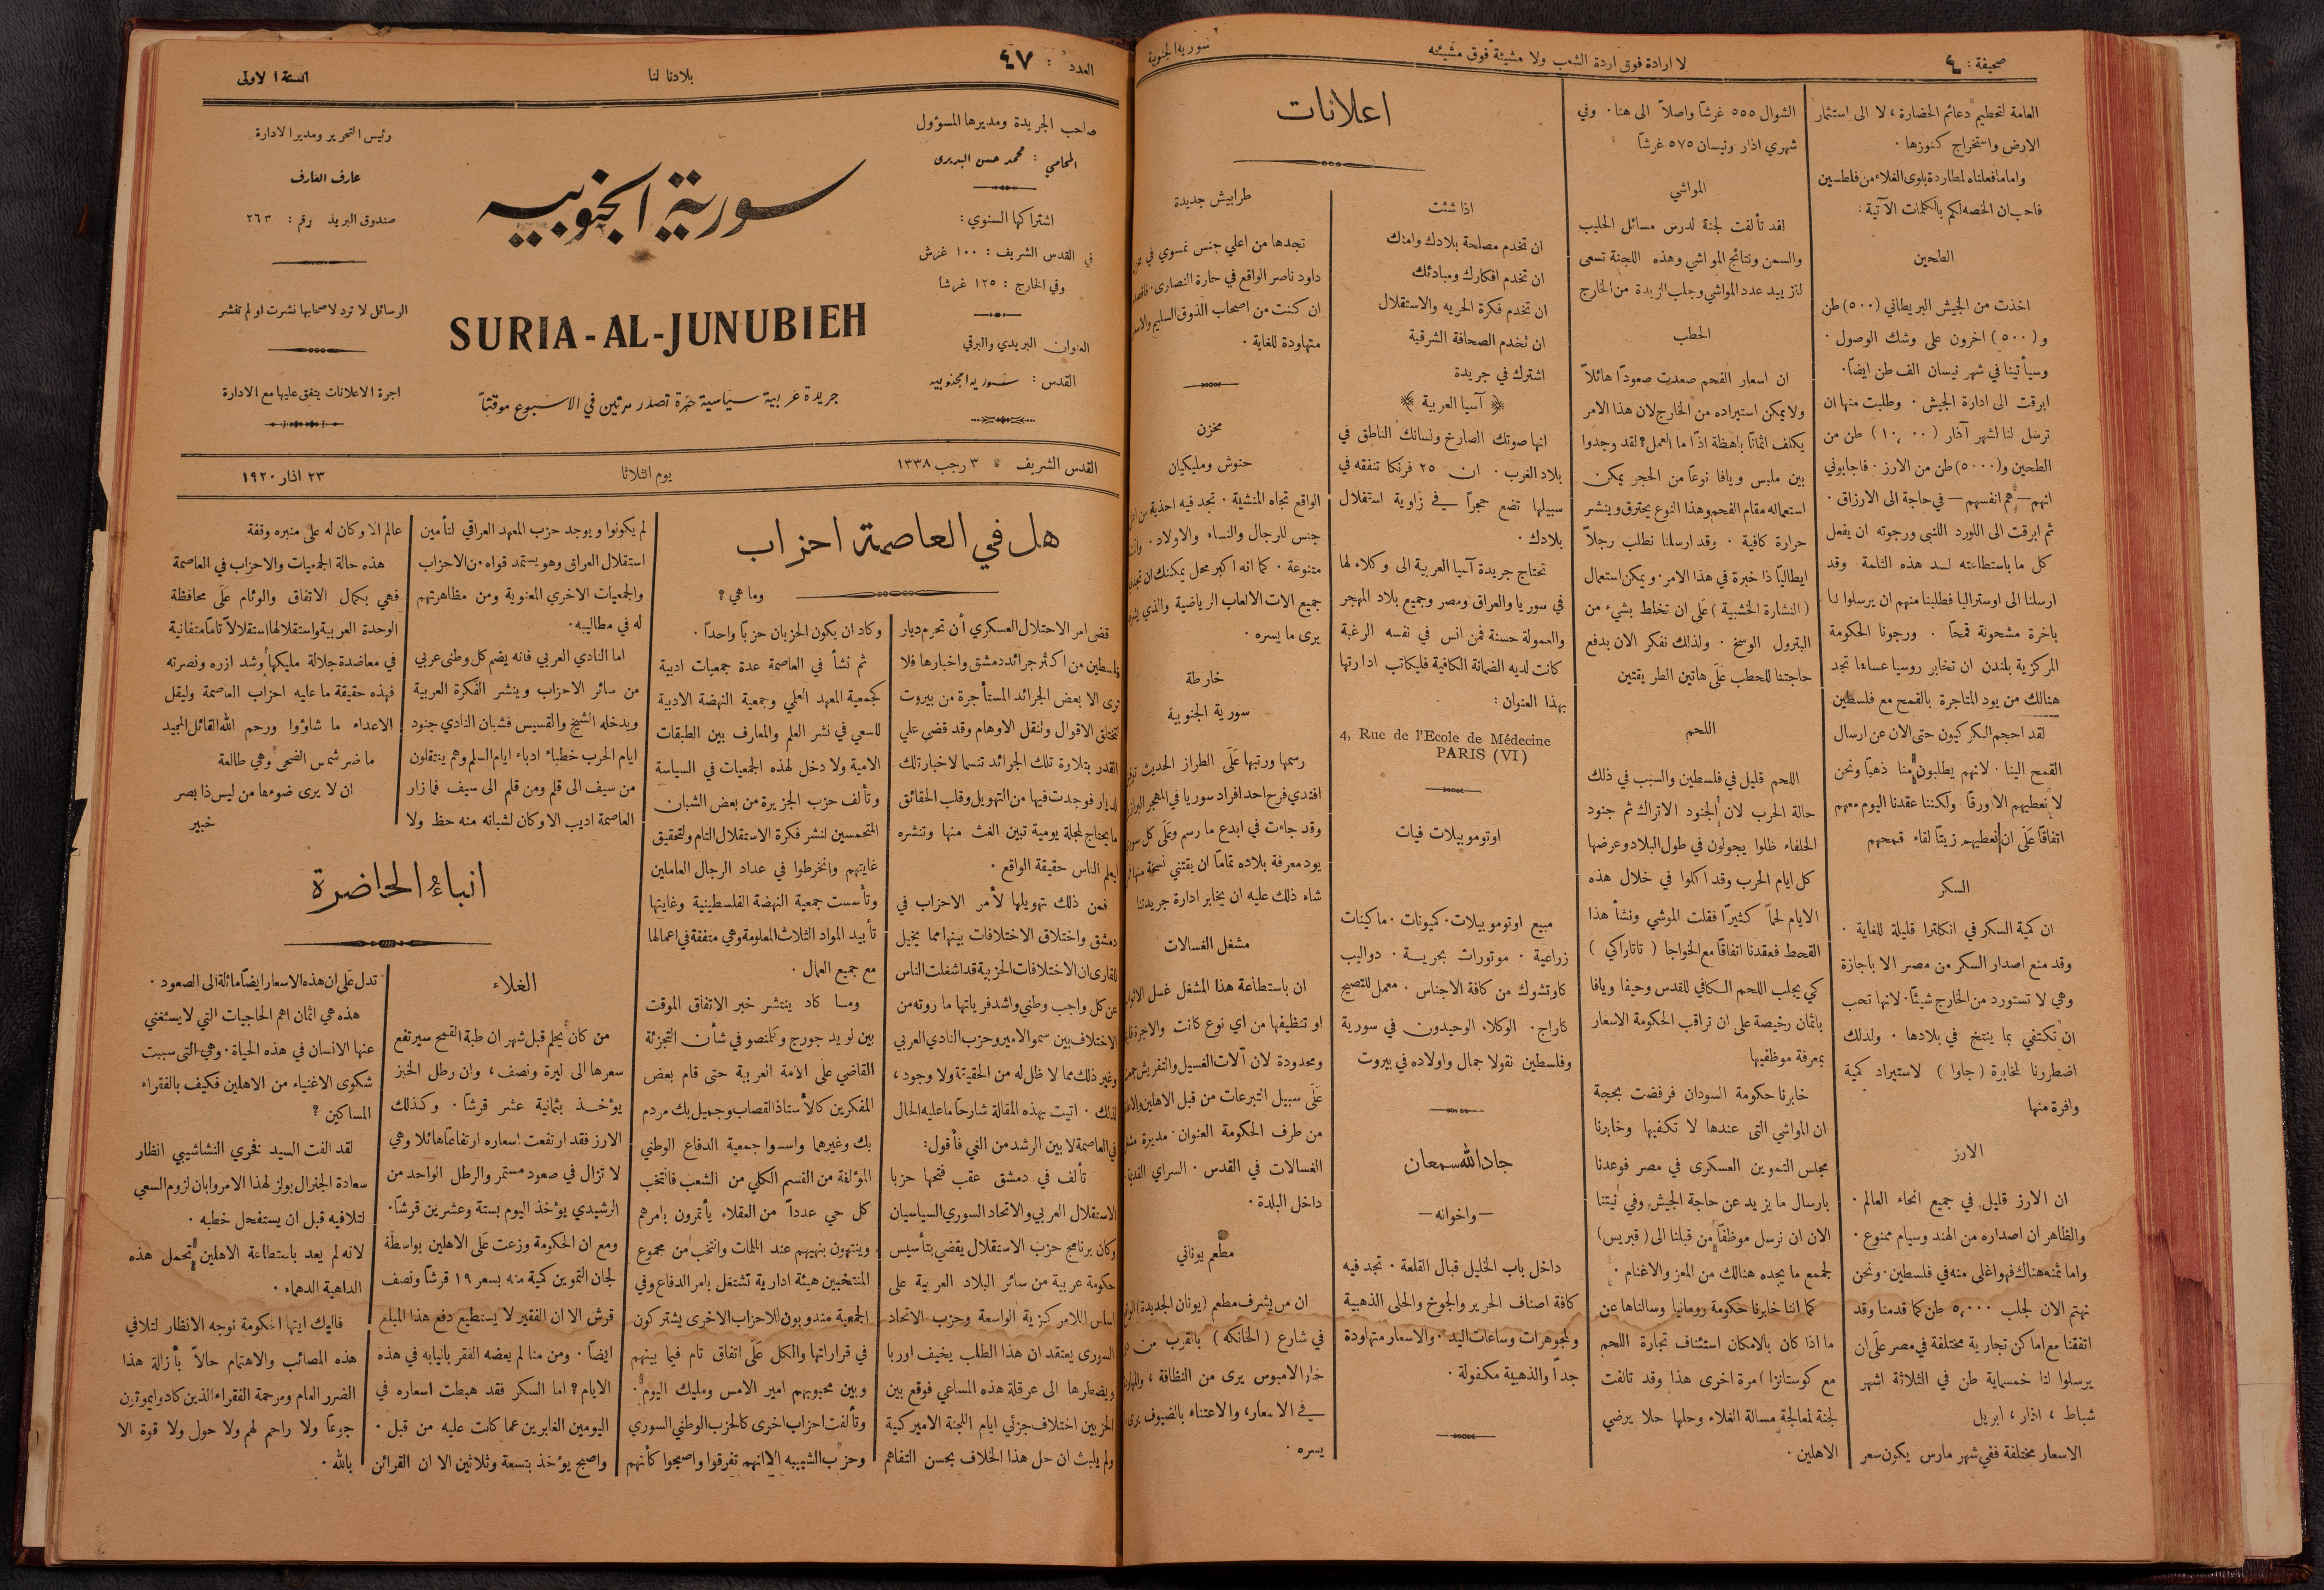 صحيفة : ٤
لا ارادة فوق اردة الشعب ولا مشيئة فوق مشيئته
سورية الجنوبية
العامة لتحطيم دعائم الحضارة ، لا الى استثمار
الارض واستخراج كنوزها .
واما ما فعلناه لمطاردة بلوى الغلاء من فلطسين
فاحب ان الخصه لكم بالكلمات الآتية :
الطحين
اخذت من الجيش البريطاني (٥٠٠) طن
و (٥٠٠) اخرون على وشك الوصول .
وسيأتينا في شهر نيسان الف طن ايضاً .
ابرقت الى ادارة الجيش . وطلبت منها ان
ترسل لنا لشهر آذار (١٠,٠٠) طن من
الطحين و(٥٠٠٠) طن من الارز . فاجابوني
انهم — هم انفسهم — في حاجة الى الارزاق .
ثم ابرقت الى اللورد اللنبي ورجوته ان يفعل
كل ما باستطاعته لسد هذه الثلمة وقد
ارسلنا الى اوستراليا فطلبنا منهم ان يرسلوا لنا
باخرة مشحونة قمحاً . ورجونا الحكومة
المركزية بلندن ان تخابر روسيا عساها تجد
هنالك من يود المتاجرة بالقمح مع فلسطين
لقد احجم الكركيون حتى الان عن ارسال
القمح الينا . لانهم يطلبون منا ذهباً ونحن
لا نعطيهم الا ورقاً ولكننا عقدنا اليوم معهم
اتفاقاً عَلَى ان نعطيهم زيتاً لقاء قمحهم
السكر
ان كمية السكر في انكلترا قليلة للغاية .
وقد منع اصدار السكر من مصر الا باجازة
وهي لا تستورد من الخارج شيئاً . لانها تحب
ان تكتفي بما ينتج في بلادها . ولذلك
اضطررنا لمخابرة (جاوا) لاستيراد كمية
وافرة منها
الارز
ان الارز قليل في جميع انحاء العالم .
والظاهر ان اصداره من الهند وسيام ممنوع .
واما ثمنه هناك فهو اغلى منه في فلسطين . ونحن
نهتم الان لجلب ٥,٠٠٠ طن كما قدمنا وقد
اتفقنا مع اماكن تجارية مختلفة في مصر عَلَى ان
يرسلوا لنا خمسماية طن في الثلاثة اشهر
شباط ، اذار ، ابريل
الاسعار مختلفة ففي شهر مارس يكون سعر
الشوال ٥٥٥ غرشاً واصلاً الى هنا . وفي
شهري اذار ونيسان ٥٧٥ غرشاً
المواشي
لقد تألفت لجنة لدرس مسائل الحليب
والسمن ونتائج المواشي وهذه اللجنة تسعى
لتزييد عدد المواشي وجلب الزبدة من الخارج
الحطب
ان اسعار الفحم صعدت صعوداً هائلاً
ولا يمكن استيراده من الخارج لان هذا الامر
يكلف اثماناً باهظة اذاً ما العمل ؟ لقد وجدوا
بين ملبس ويافا نوعاً من الحجر يمكن
استعماله مقام الفحم وهذا النوع يحترق وينشر
حرارة كافية . وقد ارسلنا نطلب رجلاً
ايطالياً ذا خبرة في هذا الامر . ويمكن استعمال
(النشارة الخشبية) عَلَى ان تخلط بشيء من
البترول الوسخ . ولذلك نفكر الان بدفع
حاجتنا للحطب عَلَى هاتين الطريقتين
اللحم
اللحم قليل في فلسطين والسبب في ذلك
حالة الحرب لان الجنود الاتراك ثم جنود
الحلفاء ظلوا يجولون في طول البلاد وعرضها
كل ايام الحرب وقد اكلوا في خلال هذه
الايام لحماً كثيراً فقلت الموشي ونشأ هذا
القحط فعقدنا اتفاقاً مع الخواجا (تاتاراكي)
كي يجلب اللحم الكافي للقدس وحيفا ويافا
باثمان رخيصة على ان تراقب الحكومة الاسعار
بمعرفة موظفيها
خابرنا حكومة السودان فرفضت بحجة
ان المواشي التى عندها لا تكفيها وخابرنا
مجلس التموين العسكرى في مصر فوعدنا
بارسال ما يزيد عن حاجة الجيش وفي نيتنا
الان ان نرسل موظفاً من قبلنا الى (قبريس)
لجمع ما يجده هنالك من المعز والاغنام .
كما اننا خابرنا حكومة رومانيا وسالناها عن
ما اذا كان بالامكان استئناف تجارة اللحم
مع كوستانزا) مرة اخرى هذا وقد تالفت
لجنة لمعالجة مسالة الغلاء وحلها حلا يرضي
الاهلين .
اعلانات
اذا شئت
ان تخدم مصلحة بلادك وامتك
ان تخدم افكارك ومبادئك
ان تخدم فكرة الحريه والاستقلال
ان تخدم الصحافة الشرقية
اشترك في جريدة
﴿ آسيا العربية ﴾
انها صوتك الصارخ ولسانك الناطق في
بلاد الغرب . ان ٢٥ فرنكا تنفقه في
سبيلها تضع حجراً في زاوية استقلال
بلادك .
تحتاج جريدة آسيا العربية الى وكلاء لها
في سوريا والعراق ومصر وجميع بلاد المهجر
والعمولة حسنة فمن انس في نفسه الرغبة
كانت لديه الضمانة الكافية فليكاتب ادارتها
بهذا العنوان :
4, Rue de l'Ecole de Médecine
PARIS (VI)
اوتوموبيلات فيات
مبيع اوتوموبيلات . كميونات . ماكينات
زراعية . موتورات بحرية . دواليب
كاوتشوك من كافة الاجناس . معمل للتصيح
كاراج . الوكلاء الوحيدون في سورية
وفلسطين نقولا جمال واولاده في بيروت
جاد الله سمعان
— واخوانه —
داخل باب الخليل قبال القلعة . تجد فيه
كافة اصناف الحرير والجوخ والحلى الذهبية
ولمجوهرات وساعات اليد . والاسعار متهاودة
جداً والذهبية مكفولة .
طرابيش جديدة
تجدها من اعلي جنس نمسوي في
داود ناصر الواقع في حارة النصارى .
ان كنت من اصحاب الذوق السليم
متهاودة للغاية .
مخزن
حنوش ومليكيان
الواقع تجاه المنشية . تجد فيه احذية من
جنس للرجال والنساء والاولاد .
متنوعة . كما انه اكبر محل يمكنك ان تجد
جميع الات الالعاب الرياضية والذي
يرى ما يسره .
خارطة
سورية الجنوبية
رسمها ورتبها عَلَى الطراز الحديث
افندي فرح احد افراد سوريا في المهجر
وقد جاءت في ابدع ما رسم وعَلَى كل
يود معرفة بلاده تماماً ان يقتني نسخة
شاء ذلك عليه ان يخابر ادارة جريدتنا
مشغل الغسالات
ان باستطاعة هذا المشغل غسل
او تنظيفها من اي نوع كانت والاجرة
ومحدودة لان آلات الغسيل والتفريش
عَلَى سبيل التبرعات من قبل الاهلين
من طرف الحكومة العنوان . مديرة
الغسالات في القدس . السراي
داخل البلدة .
مطعم يوناني
ان من يشرف مطعم (يونان الجديدة)
في شارع (الخانكه) بالقرب من
خار الامبوس يرى من النظافة ،
في الاسعار ، والاعتناء بالضيوف
يسره .
العدد : ٤٧
بلادنا لنا
السنة الاولى
صاحب الجريدة ومديرها المسؤول
المحامي : محمد حسن البديرى
اشتراكها السنوي :
في القدس الشريف : ١٠٠ غرش
وفي الخارج : ١٢٥ غرشا
العنوان البريدي والبرقي
القدس : سورية الجنوبيه
سورية الجنوبيه
SURIA-AL-JUNUBIEH
جريدة عربية سياسية حرة تصدر مرتين في الاسبوع موقتاً
رئيس التحرير ومدير الادارة
عارف العارف
صندوق البريد رقم : ٢٦٣
الرسائل لا ترد لاصحابها نشرت او لم تنشر
اجرة الاعلانات يتفق عليها مع الادارة
القدس الشريف ٣ رجب ١٣٣٨
يوم الثلاثا
٢٣ اذار ١٩٢٠
هل في العاصمة احزاب
وما هي ؟
قضى امر الاحتلال العسكري أن تحرم ديار
فلسطين من اكثر جرائد دمشق واخبارها فلا
ترى الا بعض الجرائد المستأجرة من بيروت
تختلق الاقوال وتنقل الاوهام وقد قضي علي
القدر بتلاوة تلك الجرائد تنسما لاخبار تلك
الديار فوجدت فيها من التهويل وقلب الحقائق
ما يحتاج لمجلة يومية تبين الغث منها وتنشره
ليعلم الناس حقيقة الواقع .
فمن ذلك تهويلها لأمر الاحزاب في
دمشق واختلاق الاختلافات بينها مما يخيل
للقارى ان الاختلافات الحزبية قد اشغلت الناس
عن كل واجب وطني واشد فرياتها ما روته من
الاختلاف بين سمو الامير وحزب النادي العربي
وغير ذلك مما لا ظل له من الحقيقة ولا وجود ،
لذلك . اتيت بهذه المقالة شارحاً ما عليه الحال
في العاصمة لا بين الرشد من الغي فأقول :
تألف في دمشق عقب فتحها حزبا
الاستقلال العربي والاتحاد السوري السياسيان
وكان برنامج حزب الاستقلال يقضي بتأسيس
حكومة عربية من سائر البلاد العربية على
اساس اللامركزية الواسعة وحزب الاتحاد
السورى يعتقد ان هذا الطلب يخيف اوربا
ويضطرها الى عرقلة هذه المساعي فوقع بين
الحزبين اختلاف جزئي ايام اللجنة الاميركية
ولم يلبث ان حل هذا الخلاف بحسن التفاهم
وكاد ان يكون الحزبان حزباً واحداً .
ثم نشأ في العاصمة عدة جمعيات ادبية
كجمعية المعهد العلمي وجمعية النهضة الادبية
للسعي في نشر العلم والمعارف بين الطبقات
الامية ولا دخل لهذه الجمعيات في السياسة
وتألف حزب الجزيرة من بعض الشبان
المتحمسين لنشر فكرة الاستقلال التام ولتحقيق
غايتهم وانخرطوا في عداد الرجال العاملين
وتأسست جمعية النهضة الفلسطينية وغايتها
تأييد المواد الثلاث المعلومة وهي متفقة في اعمالها
مع جميع العمال .
وما كاد ينتشر خبر الاتفاق الموقت
بين لويد جورج وكلمنصو في شأن التجزئة
القاضي عَلَى الامة العربية حتى قام بعض
المفكرين كالأستاذ القصاب وجميل بك مردم
بك وغيرهما واسسوا جمعية الدفاع الوطني
المؤلفة من القسم الكلي من الشعب فانتخب
كل حي عدداً من العقلاء يأتمرون بامرهم
وينتهون بنهيهم عند الملمات وانتخب من مجموع
المنتخبين هيئة ادارية تشتغل بامر الدفاع وفي
الجمعية مندوبون للاحزاب الاخرى يشتركون
في قراراتها والكل عَلَى اتفاق تام فيما بينهم
وبين محبوبهم امير الامس ومليك اليوم .
وتألفت احزاب اخرى كالحزب الوطني السوري
وحزب الشبيبه الا انهم تفرقوا واصبحوا كأنهم
لم يكونوا ويوجد حزب المعهد العراقي لتأمين
استقلال العراق وهو يستمد قواه من الاحزاب
والجمعيات الاخري المعنوية ومن مظاهرتهم
له في مطاليبه .
اما النادي العربي فانه يضم كل وطنى عربي
من سائر الاحزاب وينشر الفكرة العربية
ويدخله الشيخ والقسيس فشبان النادي جنود
ايام الحرب خطباء ادباء ايام السلم وهم ينتقلون
من سيف الى قلم ومن قلم الى سيف فما زار
العاصمة اديب الا وكان لشبانه منه حظ ولا
عالم الا وكان له على منبره وقفة
هذه حالة الجمعيات والاحزاب في العاصمة
فهي بكمال الاتفاق والوئام عَلَى محافظة
الوحدة العربية واستقلالها استقلالاً تاماً متفانية
في معاضدة جلالة مليكها وشد ازره ونصرته
فهذه حقيقة ما عليه احزاب العاصمة وليقل
الاعداء ما شاؤوا ورحم الله القائل المجيد
ما ضر شمس الضحى وهي طالعة
ان لا يرى ضوءها من ليس ذا بصر
خبير
انباء الحاضرة
الغلاء
من كان يحلم قبل شهر ان طبة القمح سيرتفع
سعرها الى ليرة ونصف ، وان رطل الخبز
يؤخذ بثمانية عشر قرشاً . وكذلك
الارز فقد ارتفعت اسعاره ارتفاعاً هائلا وهي
لا تزال في صعود مستمر والرطل الواحد من
الرشيدي يؤخذ اليوم بستة وعشرين قرشاً .
ومع ان الحكومة وزعت عَلَى الاهلين بواسطة
لجان التموين كمية منه بسعر ١٩ قرشاً ونصف
قرش الا ان الفقير لا يستطيع دفع هذا المبلغ
ايضاً . ومن منا لم يعضه الفقر بانيابه في هذه
الايام ؟ اما السكر فقد هبطت اسعاره في
اليومين الغابرين عما كانت عليه من قبل .
واصبح يؤخذ بتسعة وثلاثين الا ان القرائن
تدل عَلَى ان هذه الاسعار ايضاً مائلة الى الصعود .
هذه هي اثمان اهم الحاجيات التي لا يستغني
عنها الانسان في هذه الحياة . وهي التى سببت
شكوى الاغنياء من الاهلين فكيف بالفقراء
المساكين ؟
لقد الفت السيد فخري النشاشيبي انظار
سعادة الجنرال بولز لهذا الامر وابان لزوم السعي
لتلافيه قبل ان يستفحل خطبه .
لانه لم يعد باستطاعة الاهلين تحمل هذه
الداهية الدهماء .
فاليك ايتها الحكومة نوجه الانظار لتلافي
هذه المصائب والاهتمام حالاً بأزالة هذا
الضرر العام ومرحمة الفقراء الذين كادوا يموتون
جوعاً ولا راحم لهم ولا حول ولا قوة الا
بالله .